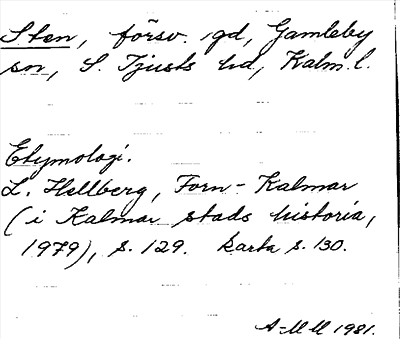 Sten, försv. gd, Gamleby
sn, S. Tjusts hd, Kalm. l.
Etymologi.
L. Hellberg, Forn-Kalmar
(i Kalmar stads historia,
1979), s. 129. karta s. 130.
A-MM 1981.